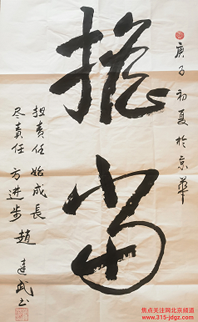 庚子初夏於京華
擔當
担責任 始成長
尽責任 方进步 趙
建武书
焦点关注网北京频道
www.315-jdgz.com